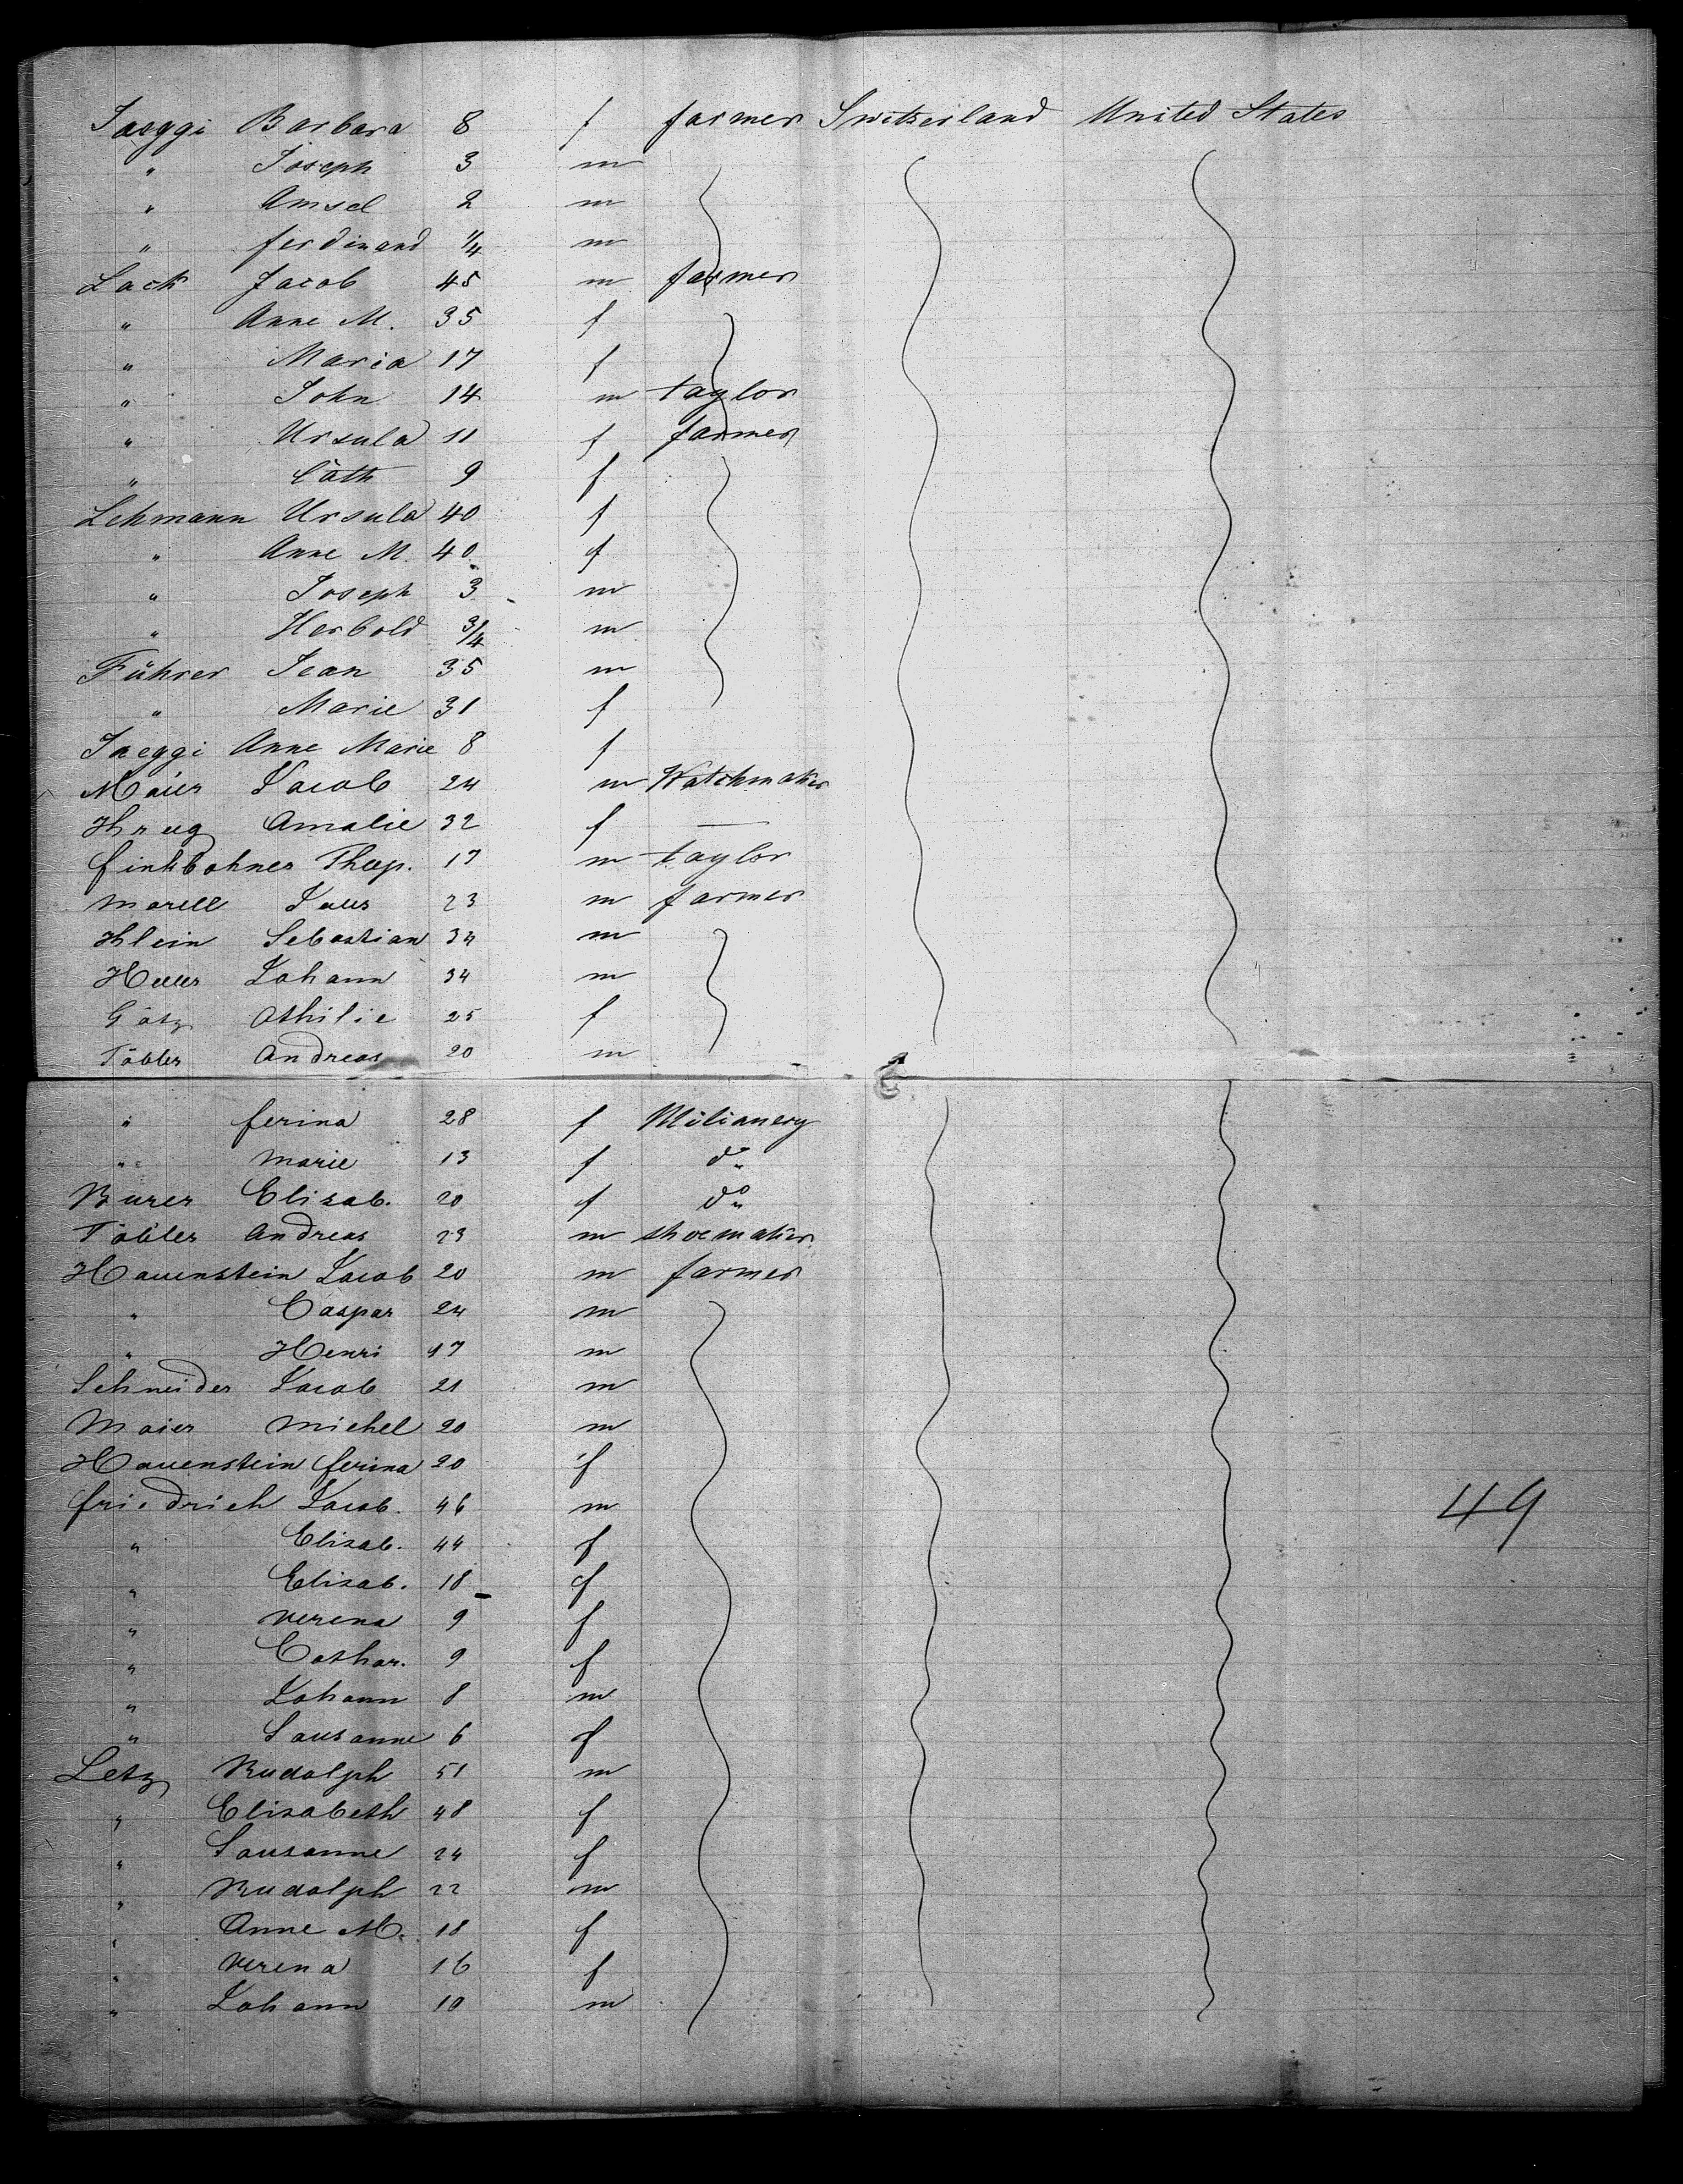 Jaeggi Barbara 8 f farmer Switzerland United States
" Joseph 3 m
" Amsel 2 m
" ferdinand 1/4 m
Lack Jacob 45 m farmer
" Anne M. 35 f
" Maria 17 f
" John 14 m taylor
" Ursula 11 f farmer
" Cath 9 f
Lehmann Ursula 40 f
" Anne M. 40 f
" Joseph 3 m
" Herbold 3/4 m
Führer Jean 35 m
" Marie 31 f
Jaeggi Anne Marie 8 f
Maier Jacob 24 m Watchmaker
Krug Amalie 32 f —
finkbohner 17 m taylor
Morell 23 m farmer
Klein Sebastian 34 m
Johann 34 m
Götz Othilie 25 f
Töbler Andreas 20 m
" ferina 28 f Milianery
" Marie 13 f do
Burer Elisab. 20 f do
Töbler Andreas 23 m shoemaker
Hauenstein Jacob 20 m farmer
" Caspar 24 m
" Henri 17 m
Schneider Jacob 21 m
Maier Michel 20 m
Hauenstein ferina 20 f
friedrich Jacob. 46 m
" Elisab. 44 f
" Elisab. 18 f
" Verena 9 f
" Cathar. 9 f
" Johann 8 m
" Sausanne 6 f
49
Letz Rudolph 51 m
" Elisabeth 48 f
" Sausanne 24 f
" Rudolph 22 m
" Anne M. 18 f
" Verena 16 f
" Johann 10 m